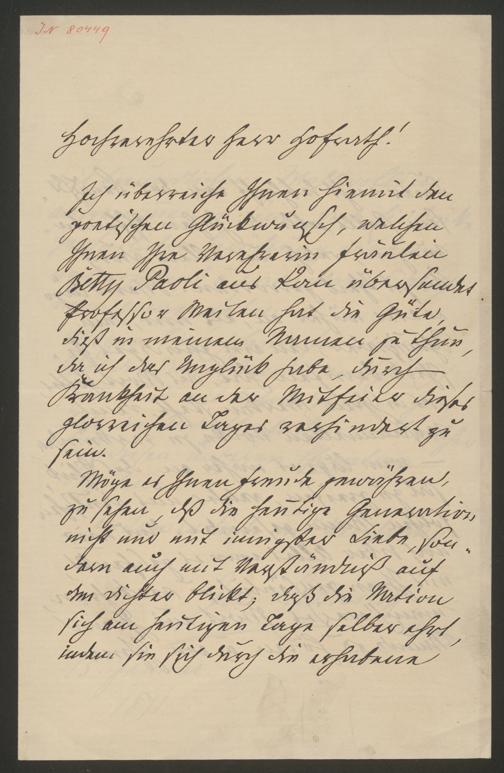 IN 80449
Hochverehrter Herr Hofrath!
Ich überreiche Ihnen hiemit den
poetischen Glückwunsch, welchen
Ihnen Ihre Verehrerin Fräulein
Betty Paoli aus Rom übersendet.
Professor Weilen hat die Güte,
dieß in meinem Namen zu thun,
da ich das Unglück habe, durch
Krankheit an der Mitfeier dieses
glorreichen Tages verhindert zu
sein.
Möge es Ihnen Freude gewähren,
zu sehen, daß die heutige Generation
nicht nur mit innigster Liebe, son-
dern auch mit Verständniß auf
den Dichter blickt; daß die Nation
sich am heutigen Tage selber ehrt,
indem sie sich durch die erhabene